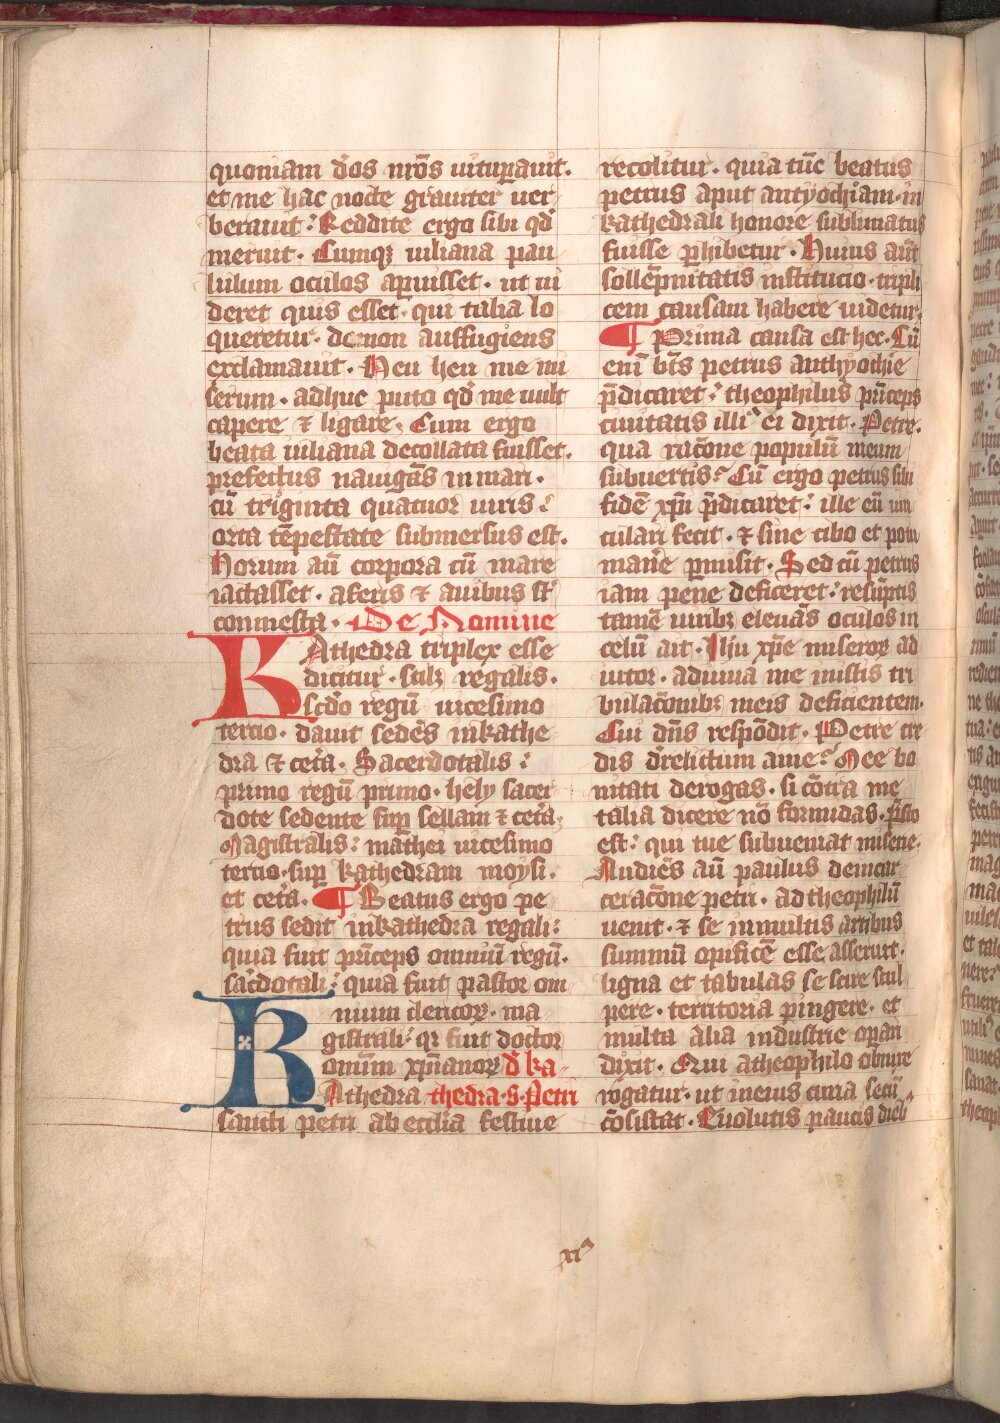 quoniam d̄os nr̄os uituꝑauit.
et me hac nocte grauiter uer
berauit: Reddite ergo sibi qd̄
meruit. Cumqꝫ iuliana pau
lulum oculos aꝑuisset. ut ui
deret quis esset. qui talia lo
queretur. demon auffugiens
exclamauit. Heu heu me mi
serum. adhuc puto qd̄ me uult
capere ⁊ ligare. Cum ergo
beata iuliana decollata fuisset.
prefectus nauigās in mari.
cū triginta quatuor uiris:
orta tēpestate submersus est.
Horum aū corpora cū mare
iactasset. a feris ⁊ auibus st̄
conmesta. De Nomine
KAthedra triplex esse
dicitur. sꝫ regalis.
scd̄o regū uicesimo
tercio. dauit sedēs in kathe
dra ⁊ cetā. Sacerdotalis:
primo regū primo. hely sacer
dote sedente suꝑ sellam ⁊ cetā.
Magistralis: mathei uicesimo
tercio. suꝑ kathedram moysi.
et cetā. ¶ Beatus ergo pe
trus sedit in kathedra regali:
quia fuit pri̅ceps omniū regū.
sac̄dotali: quia fuit pastor om
nium clericoꝝ. ma
gistrali: qꝛ fuit doctor
omnium xp̄ianoꝝ d̄ ka
KAthedra thedra. s. Petri
sancti petri ab eccl̄ia festiue
recolitur. quia tūc beatus
petrus aput antyochiam. in
kathedrali honore sublimatus
fuisse ꝑhibetur. Huius aūt
sollēpnitatis institucio. tripli
cem causam habere uidetur.
¶ Prima causa est hec. Cū
enī bt̄s petrus anthyochie
p̄dicaret: theophilus pri̅ceps
ciuitatis illi ei dixit. Petre.
qua rac̄one populū meum
subuertis: Cū ergo petrus sibi
fidē xp̄i p̄dicaret: ille eū uin
culari fecit. ⁊ sine cibo et potu
manē ꝑmisit. Sed cū petrus
iam pene deficeret: resūptis
tamē uiribꝫ eleuās oculos in
celū ait. Ih̄u xp̄e miseroꝝ ad
iutor. adiuua me in istis tri
bulac̄onibꝫ meis deficientem.
Cui dn̄s respōdit. Petre cre
dis d̄relictum a me: Mee bo
nitati derogas. si cōtra me
talia dicere nō formidas. p̄sto
est: qui tue subueniat miserie.
Audiēs aū paulus de incar
cerac̄one petri. ad theophilū
uenit. ⁊ se in multis artibus
summū opificē esse asseruit.
ligna et tabulas se scire scul
pere. territoria pingere. et
multa alia industrie oꝑari
dixit. Qui a theophilo obnixe
rogatur. ut in eius curia secū
cōsistat. Euolutis paucis dieb
xiꝰ